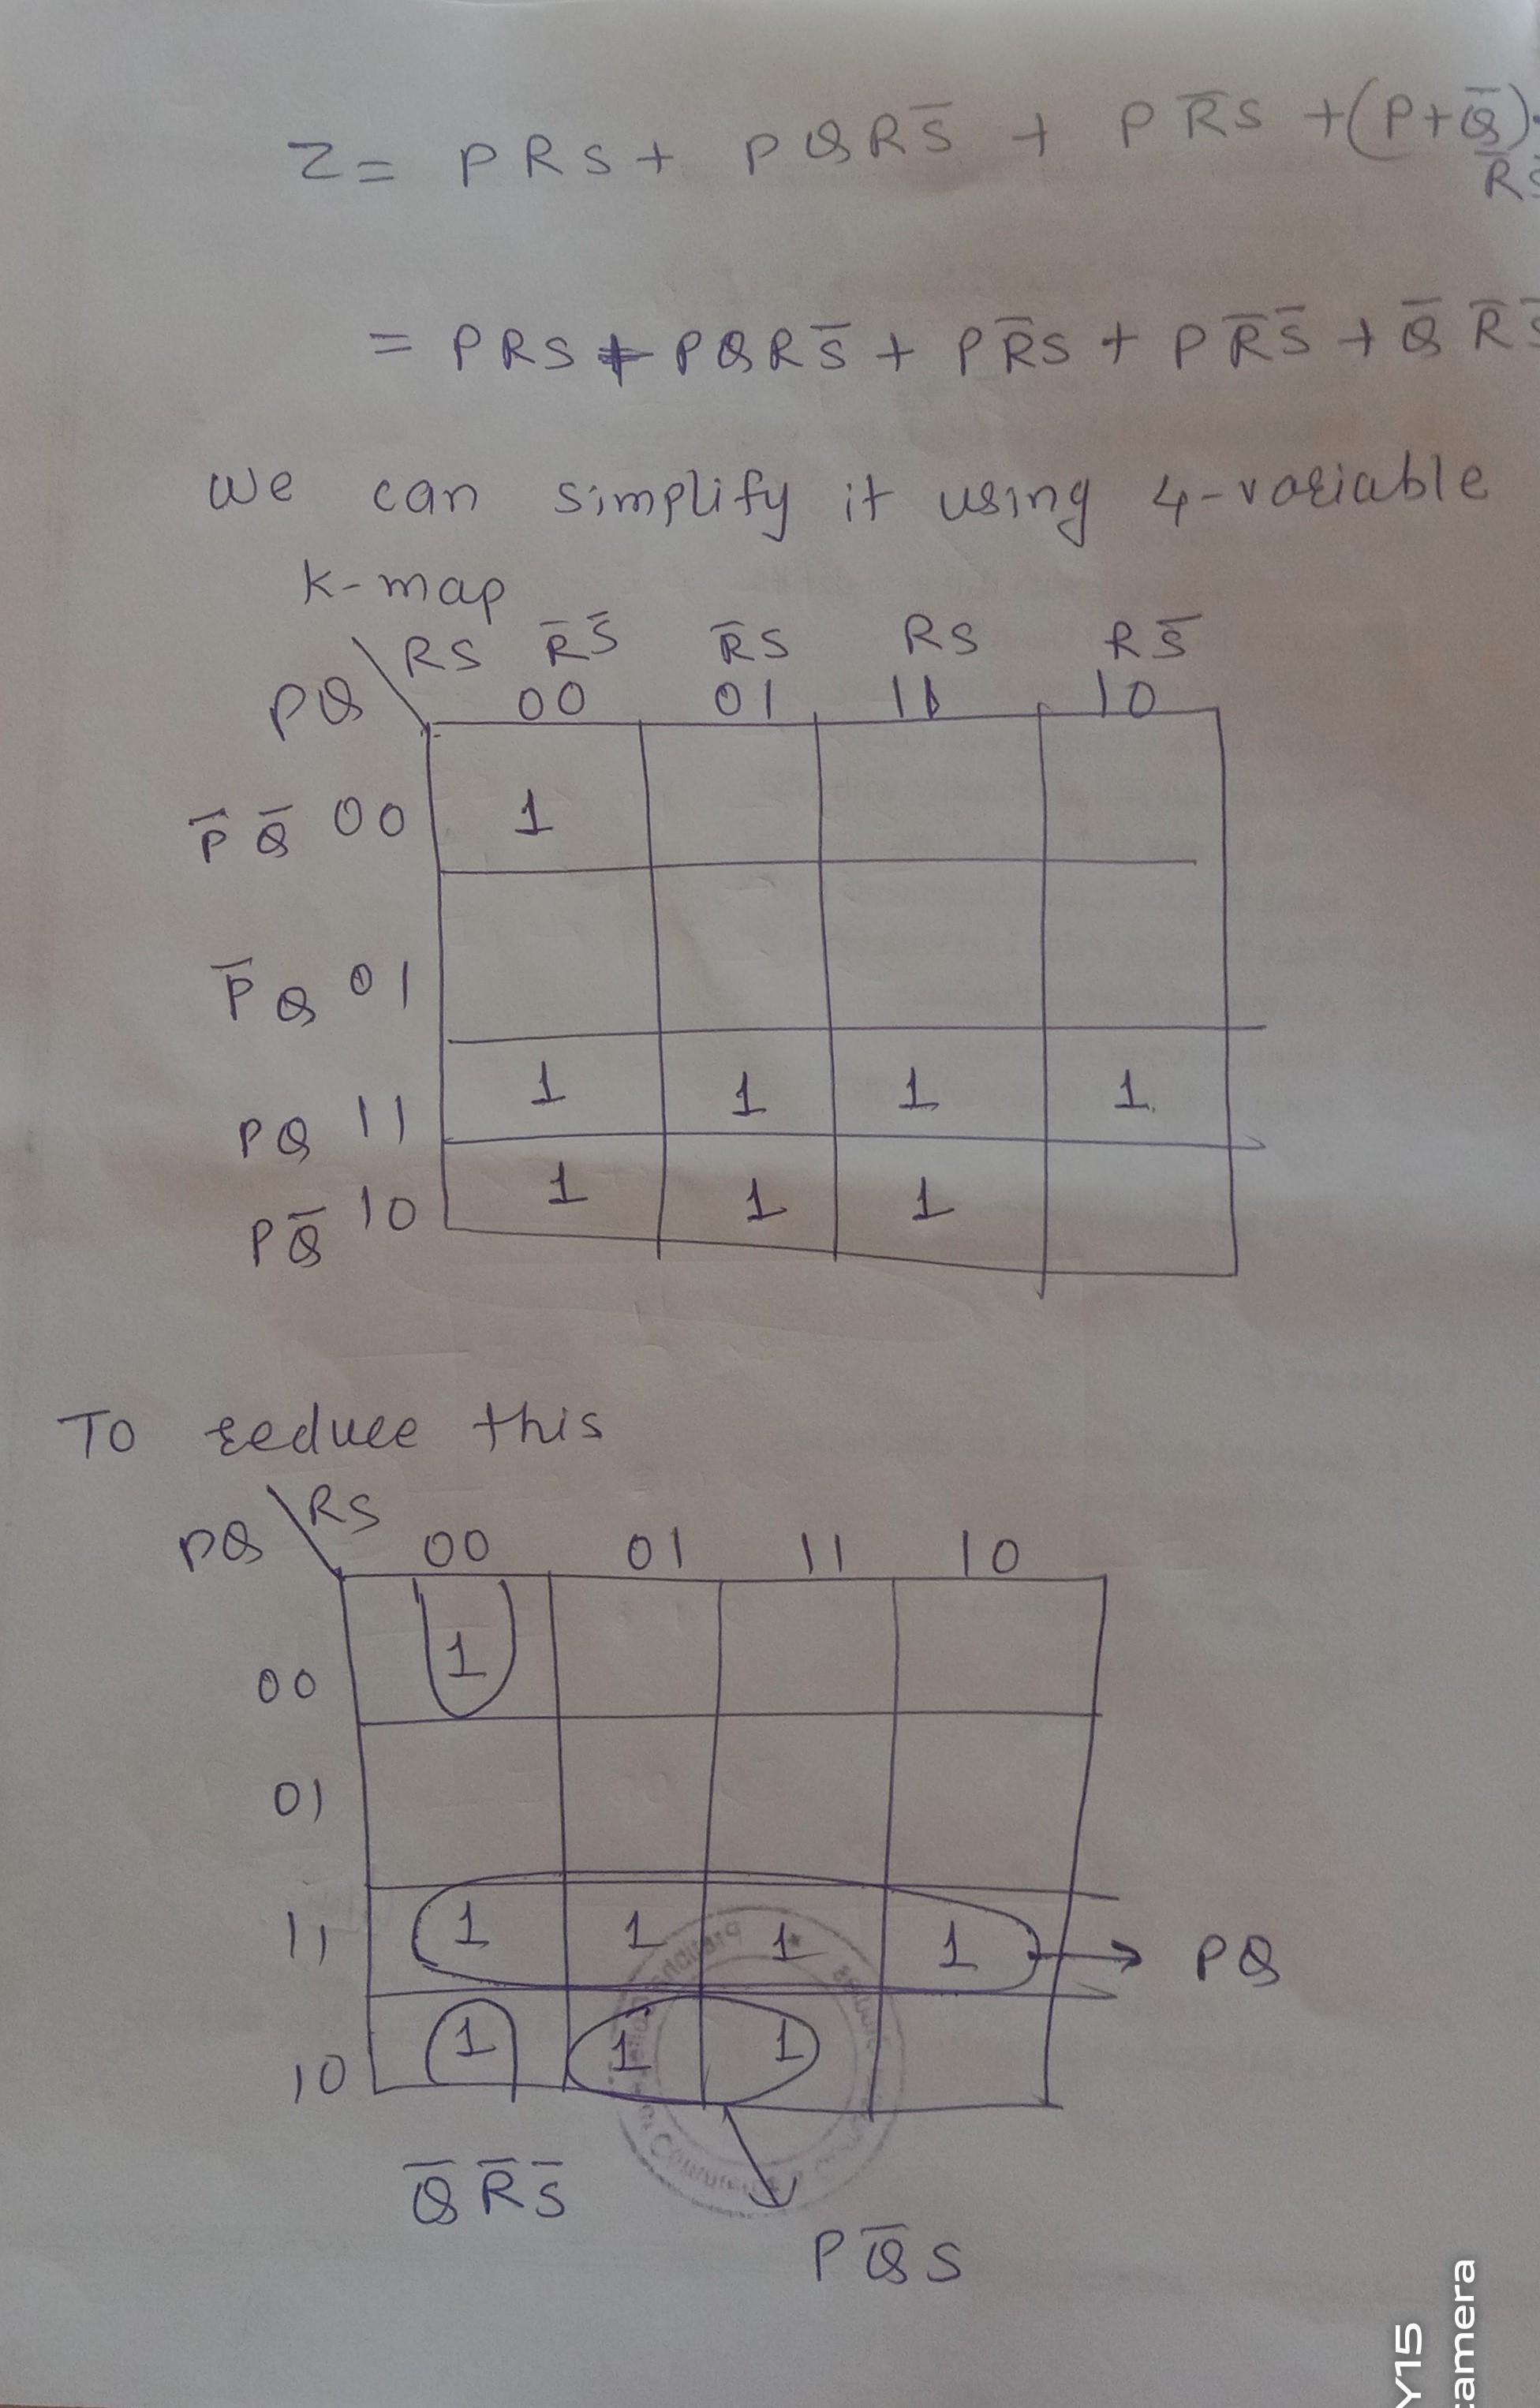 Z = PRS + PQRS̅ + PR̅S + (P+Q̅).
R̅S̅
= PRS + PQRS̅ + PR̅S + PR̅S̅ + Q̅R̅S̅
we can simplify it using 4-variable
K-map
RS R̅S̅ R̅S RS RS̅
PQ 00 01 11 10
P̅Q̅ 00 1
P̅Q 01
PQ 11 1 1 1 1
PQ̅ 10 1 1 1
To reduce this
PQ RS 00 01 11 10
00 1
01
11 1 1 1 1 → PQ
10 1 1 1
Q̅R̅S̅
PQ̅S
Y15
camera